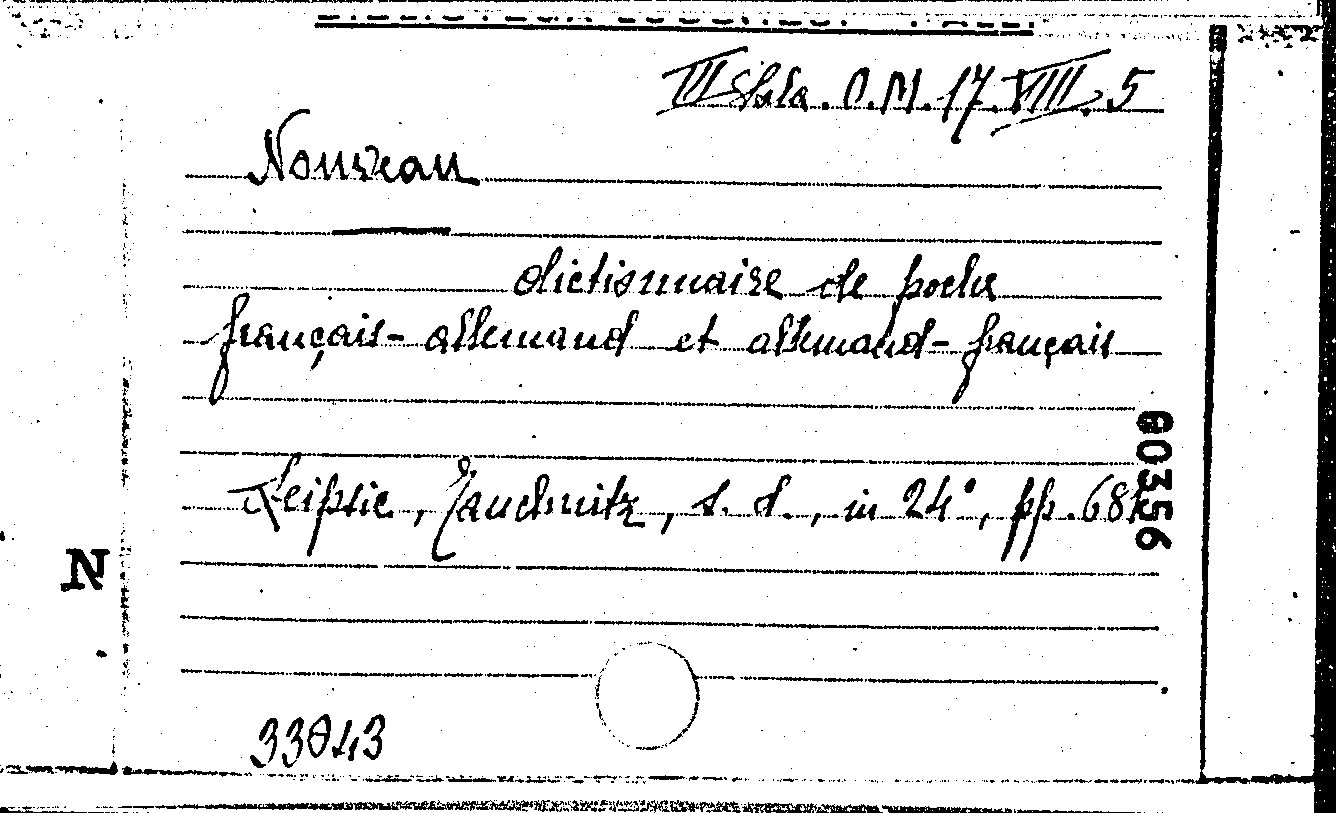 III Sala. O.M. 17. VIIII. 5
Nouveau
dictionnaire de poche
français-allemand et allemand-français
Leipsic, Tauchnitz, s. d., in 24°, pp.
00356
N
33043